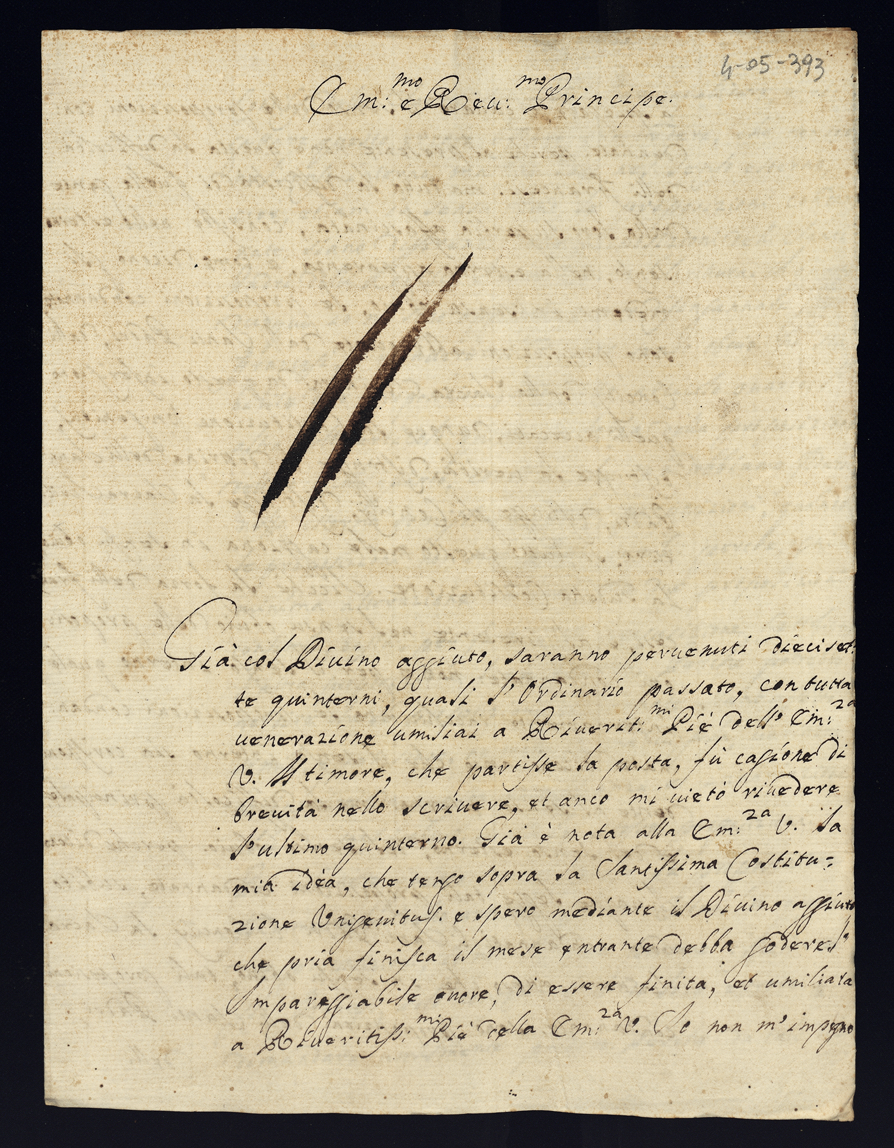 4-05-393
Em:mo e Reu:mo Principe.
Già col Diuino aggiuto, saranno peruenuti dieciset-
te quinterni, quali l'ordinario passato, con tutta
uenerazione umiliai a Riuerit:mi Piè dell' Em:za
V. Il timore, che partisse la posta, fù cagione di
breuità nello scriuere, et anco mi uietò riuedere
l'ultimo quinterno. Già è nota alla Em:za V. la
mia idéa, che tengo sopra la Santissima Costitu=
zione Unigenitus. e spero mediante il Diuino aggiuto
che pria finisca il mese entrante debba godere l'
Impareggiabile onore, di essere finita, et umiliata
a Riueritissi:mi Piè della Em:za V. Io non m'impegno